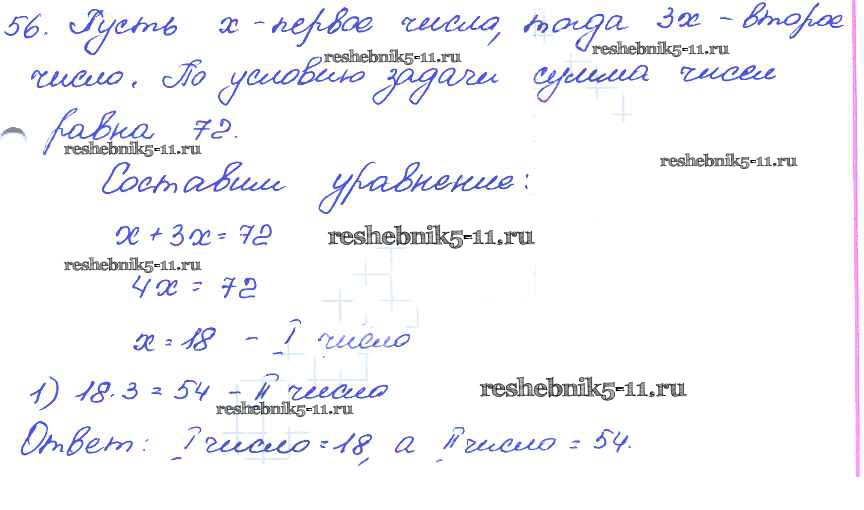 56. Пусть x - первое число, тогда 3x - второе
reshebnik5-11.ru
reshebnik5-11.ru
число. По условию задачи сумма чисел
равна 72.
reshebnik5-11.ru
reshebnik5-11.ru
Составим уравнение:
x + 3x = 72
reshebnik5-11.ru
reshebnik5-11.ru
4x = 72
x = 18 - I число
1) 18·3 = 54 - II число
reshebnik5-11.ru
reshebnik5-11.ru
Ответ: I число = 18, а II число = 54.